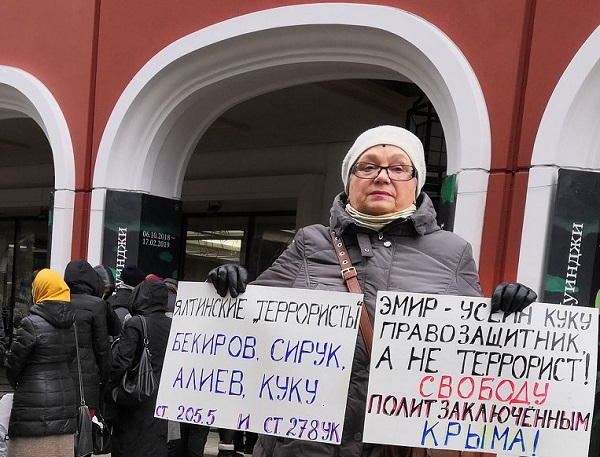 уинджи
06.10.2018 -
17.02.2019
уинджи
ЯЛТИНСКИЕ „ТЕРРОРИСТЫ"
БЕКИРОВ, СИРУК,
АЛИЕВ, КУКУ
СТ 205.5 И СТ 278 УК
ЭМИР-УСЕИН КУКУ
ПРАВОЗАЩИТНИК,
А НЕ ТЕРРОРИСТ!
СВОБОДУ
ПОЛИТЗАКЛЮЧЁННЫМ
КРЫМА!